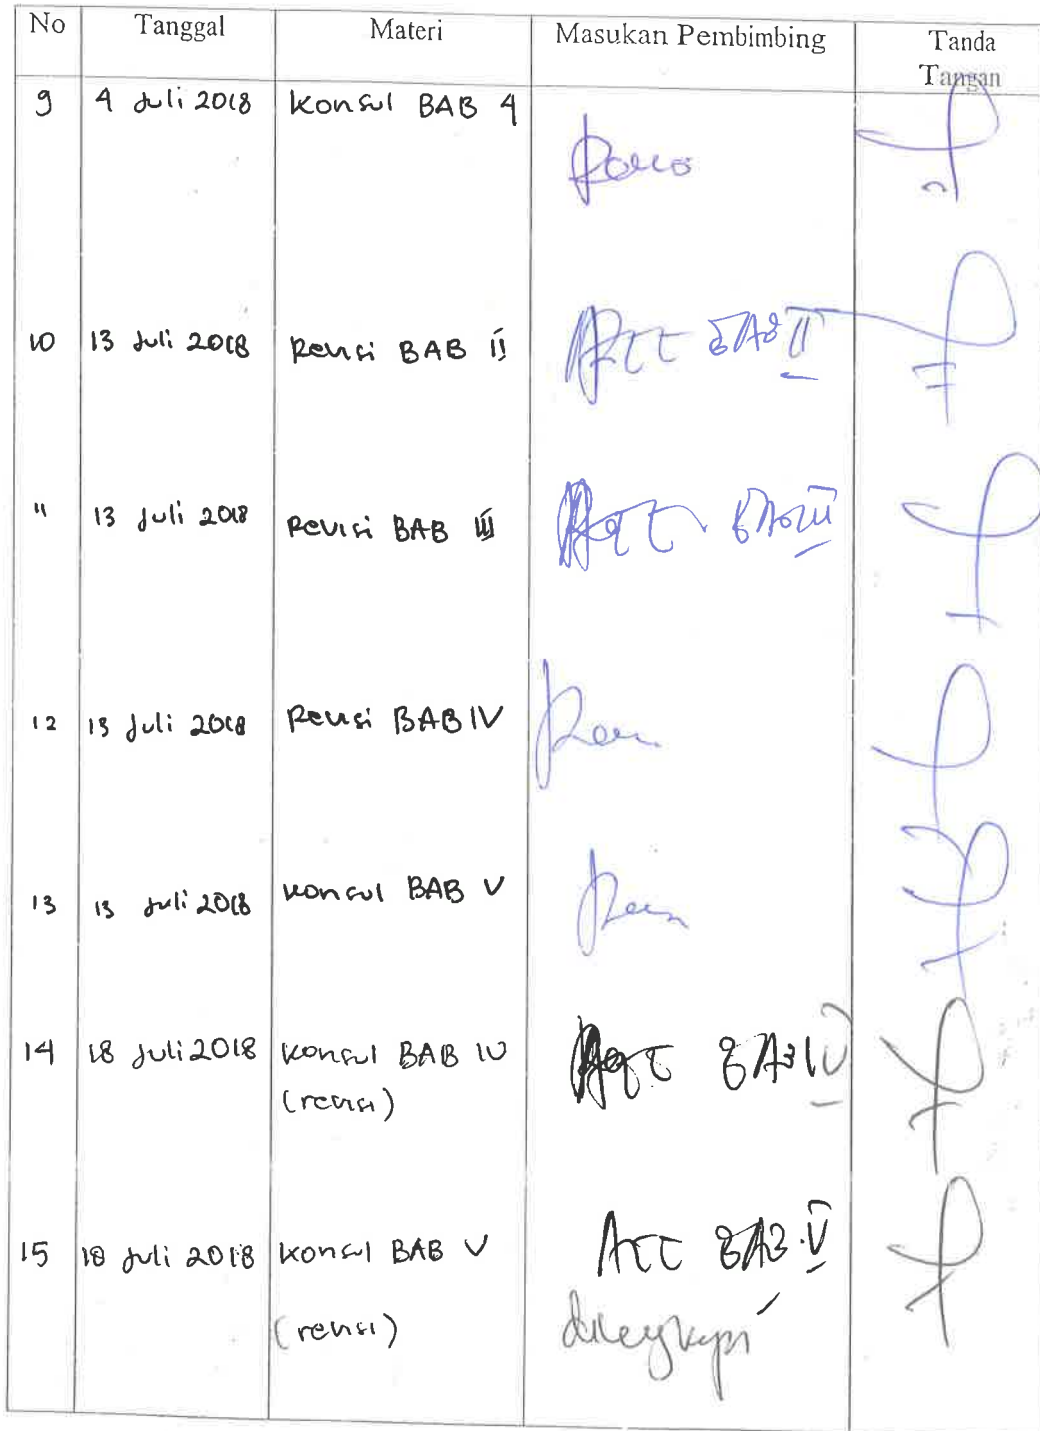 No Tanggal Materi Masukan Pembimbing Tanda
Tangan
9 4 Juli 2018 Konsul BAB 4
10 13 Juli 2018 Revisi BAB II ACC BAB II
11 13 Juli 2018 Revisi BAB III ACC BAB III
12 13 Juli 2018 Revisi BAB IV
13 13 Juli 2018 Konsul BAB V
14 18 Juli 2018 Konsul BAB IV ACC BAB IV
(revisi)
15 18 Juli 2018 Konsul BAB V ACC BAB V
(revisi) dilengkapi